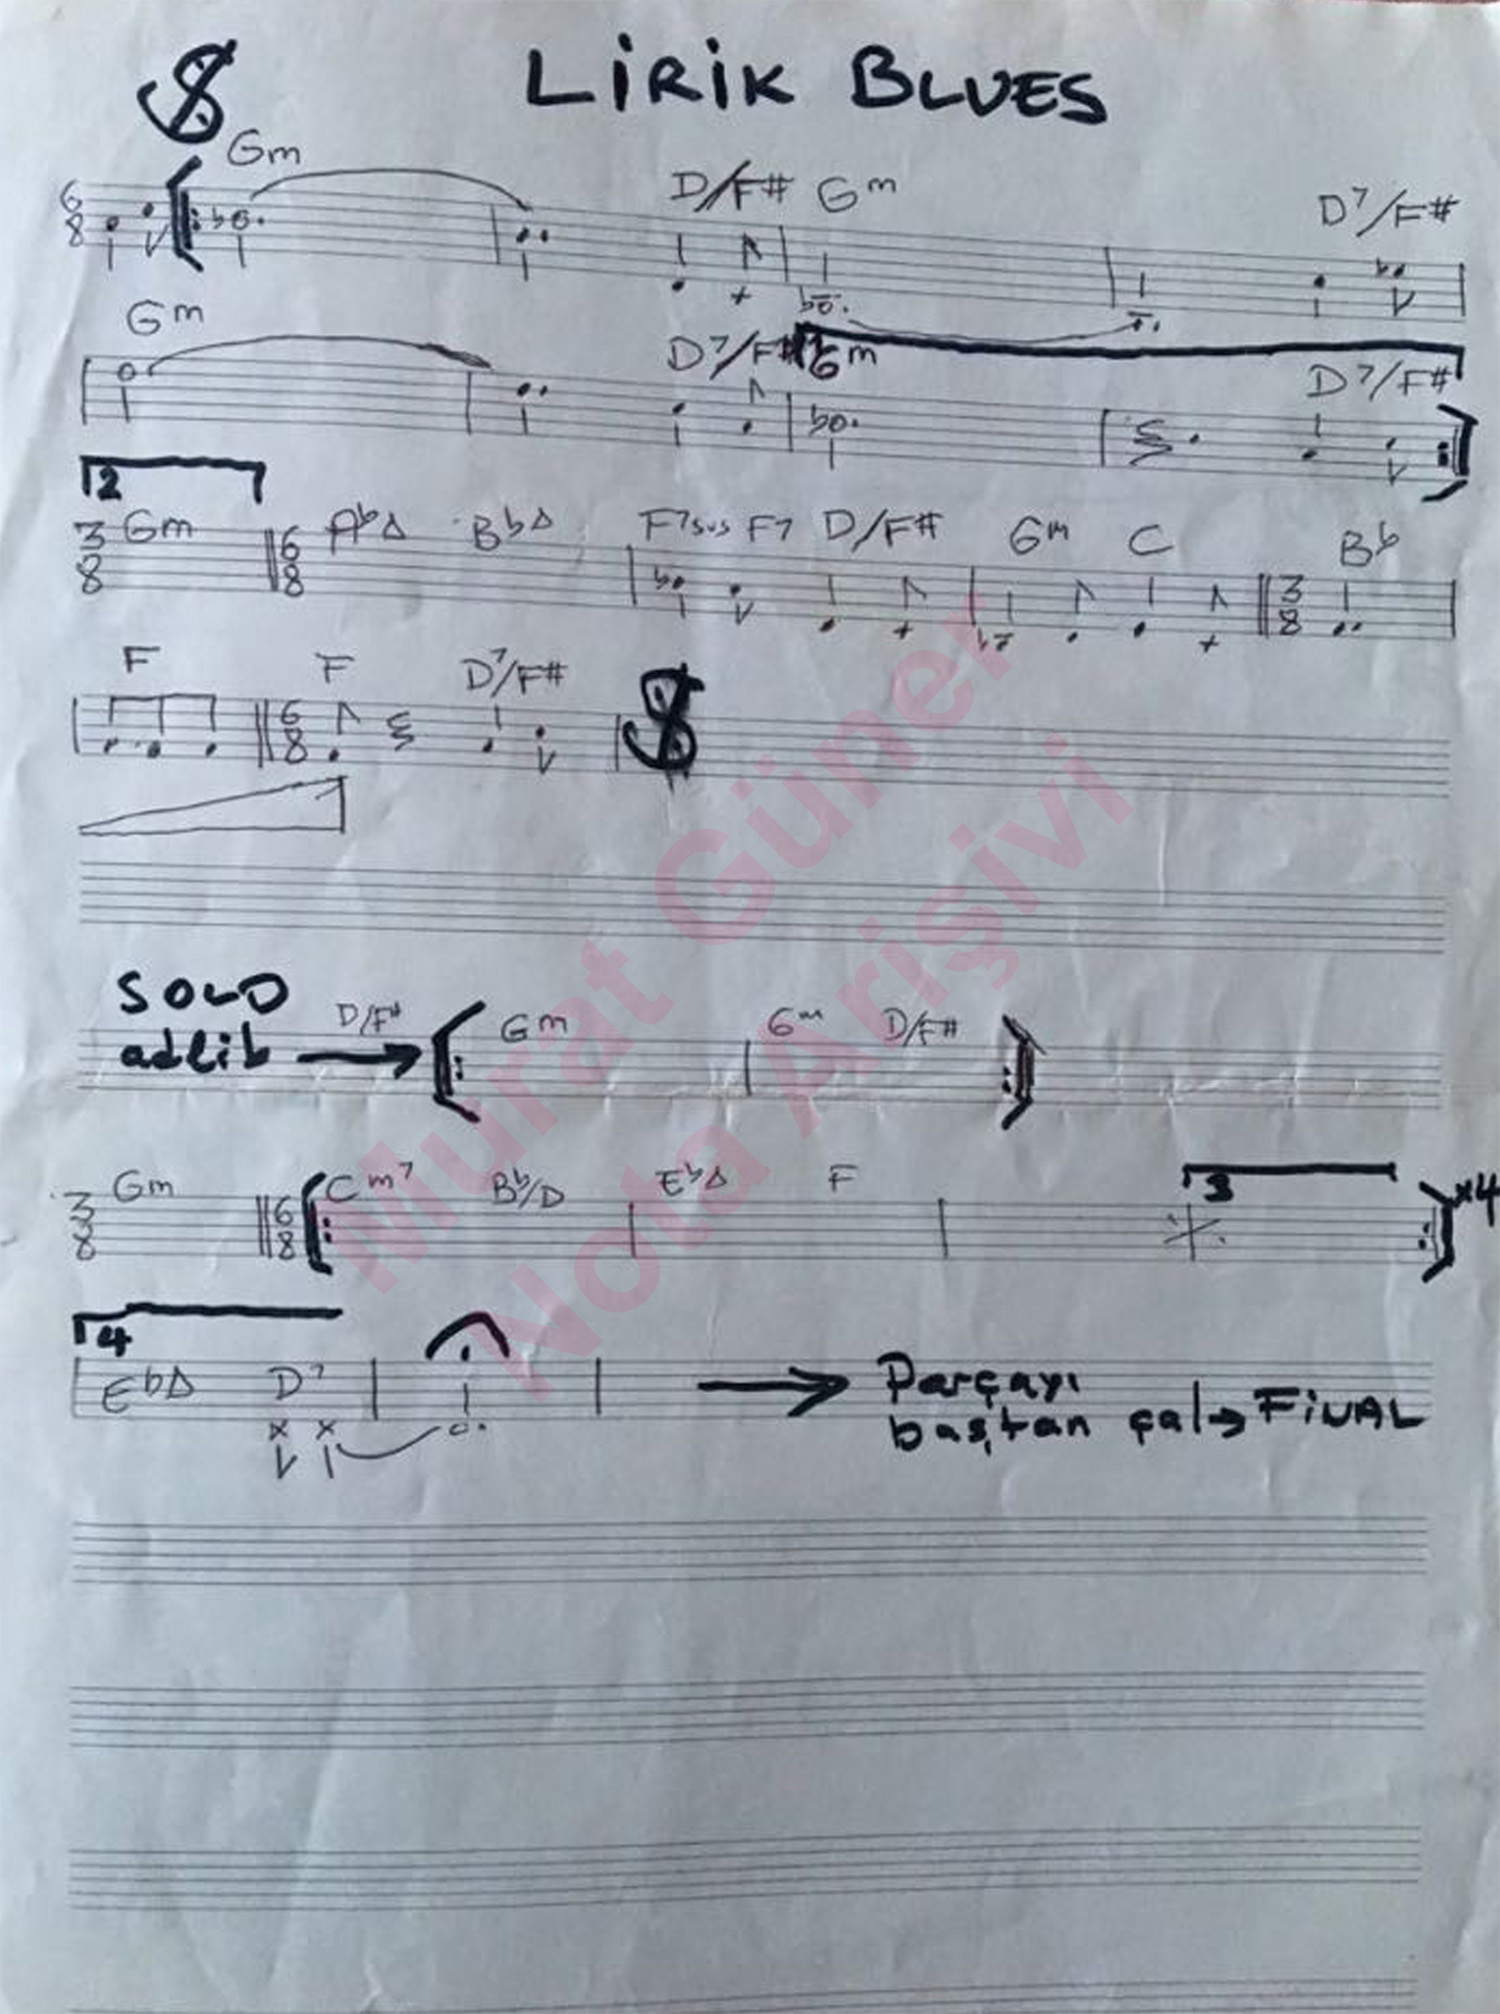 LİRİK BLUES
Gm D/F# Gm D7/F#
6
8
Gm D7/F# Gm D7/F#
2
3 Gm 6 AbΔ BbΔ F7sus F7 D/F# Gm C 3 Bb
8 8 8
F F D7/F#
6
8
SOLO
adlib D/F# Gm Gm D/F#
3 Gm 6 Cm7 Bb/D EbΔ F 3 x4
8 8
4
EbΔ D7 Parçayı
baştan çal → FiNAL
Murat Güner
Nota Arişivi